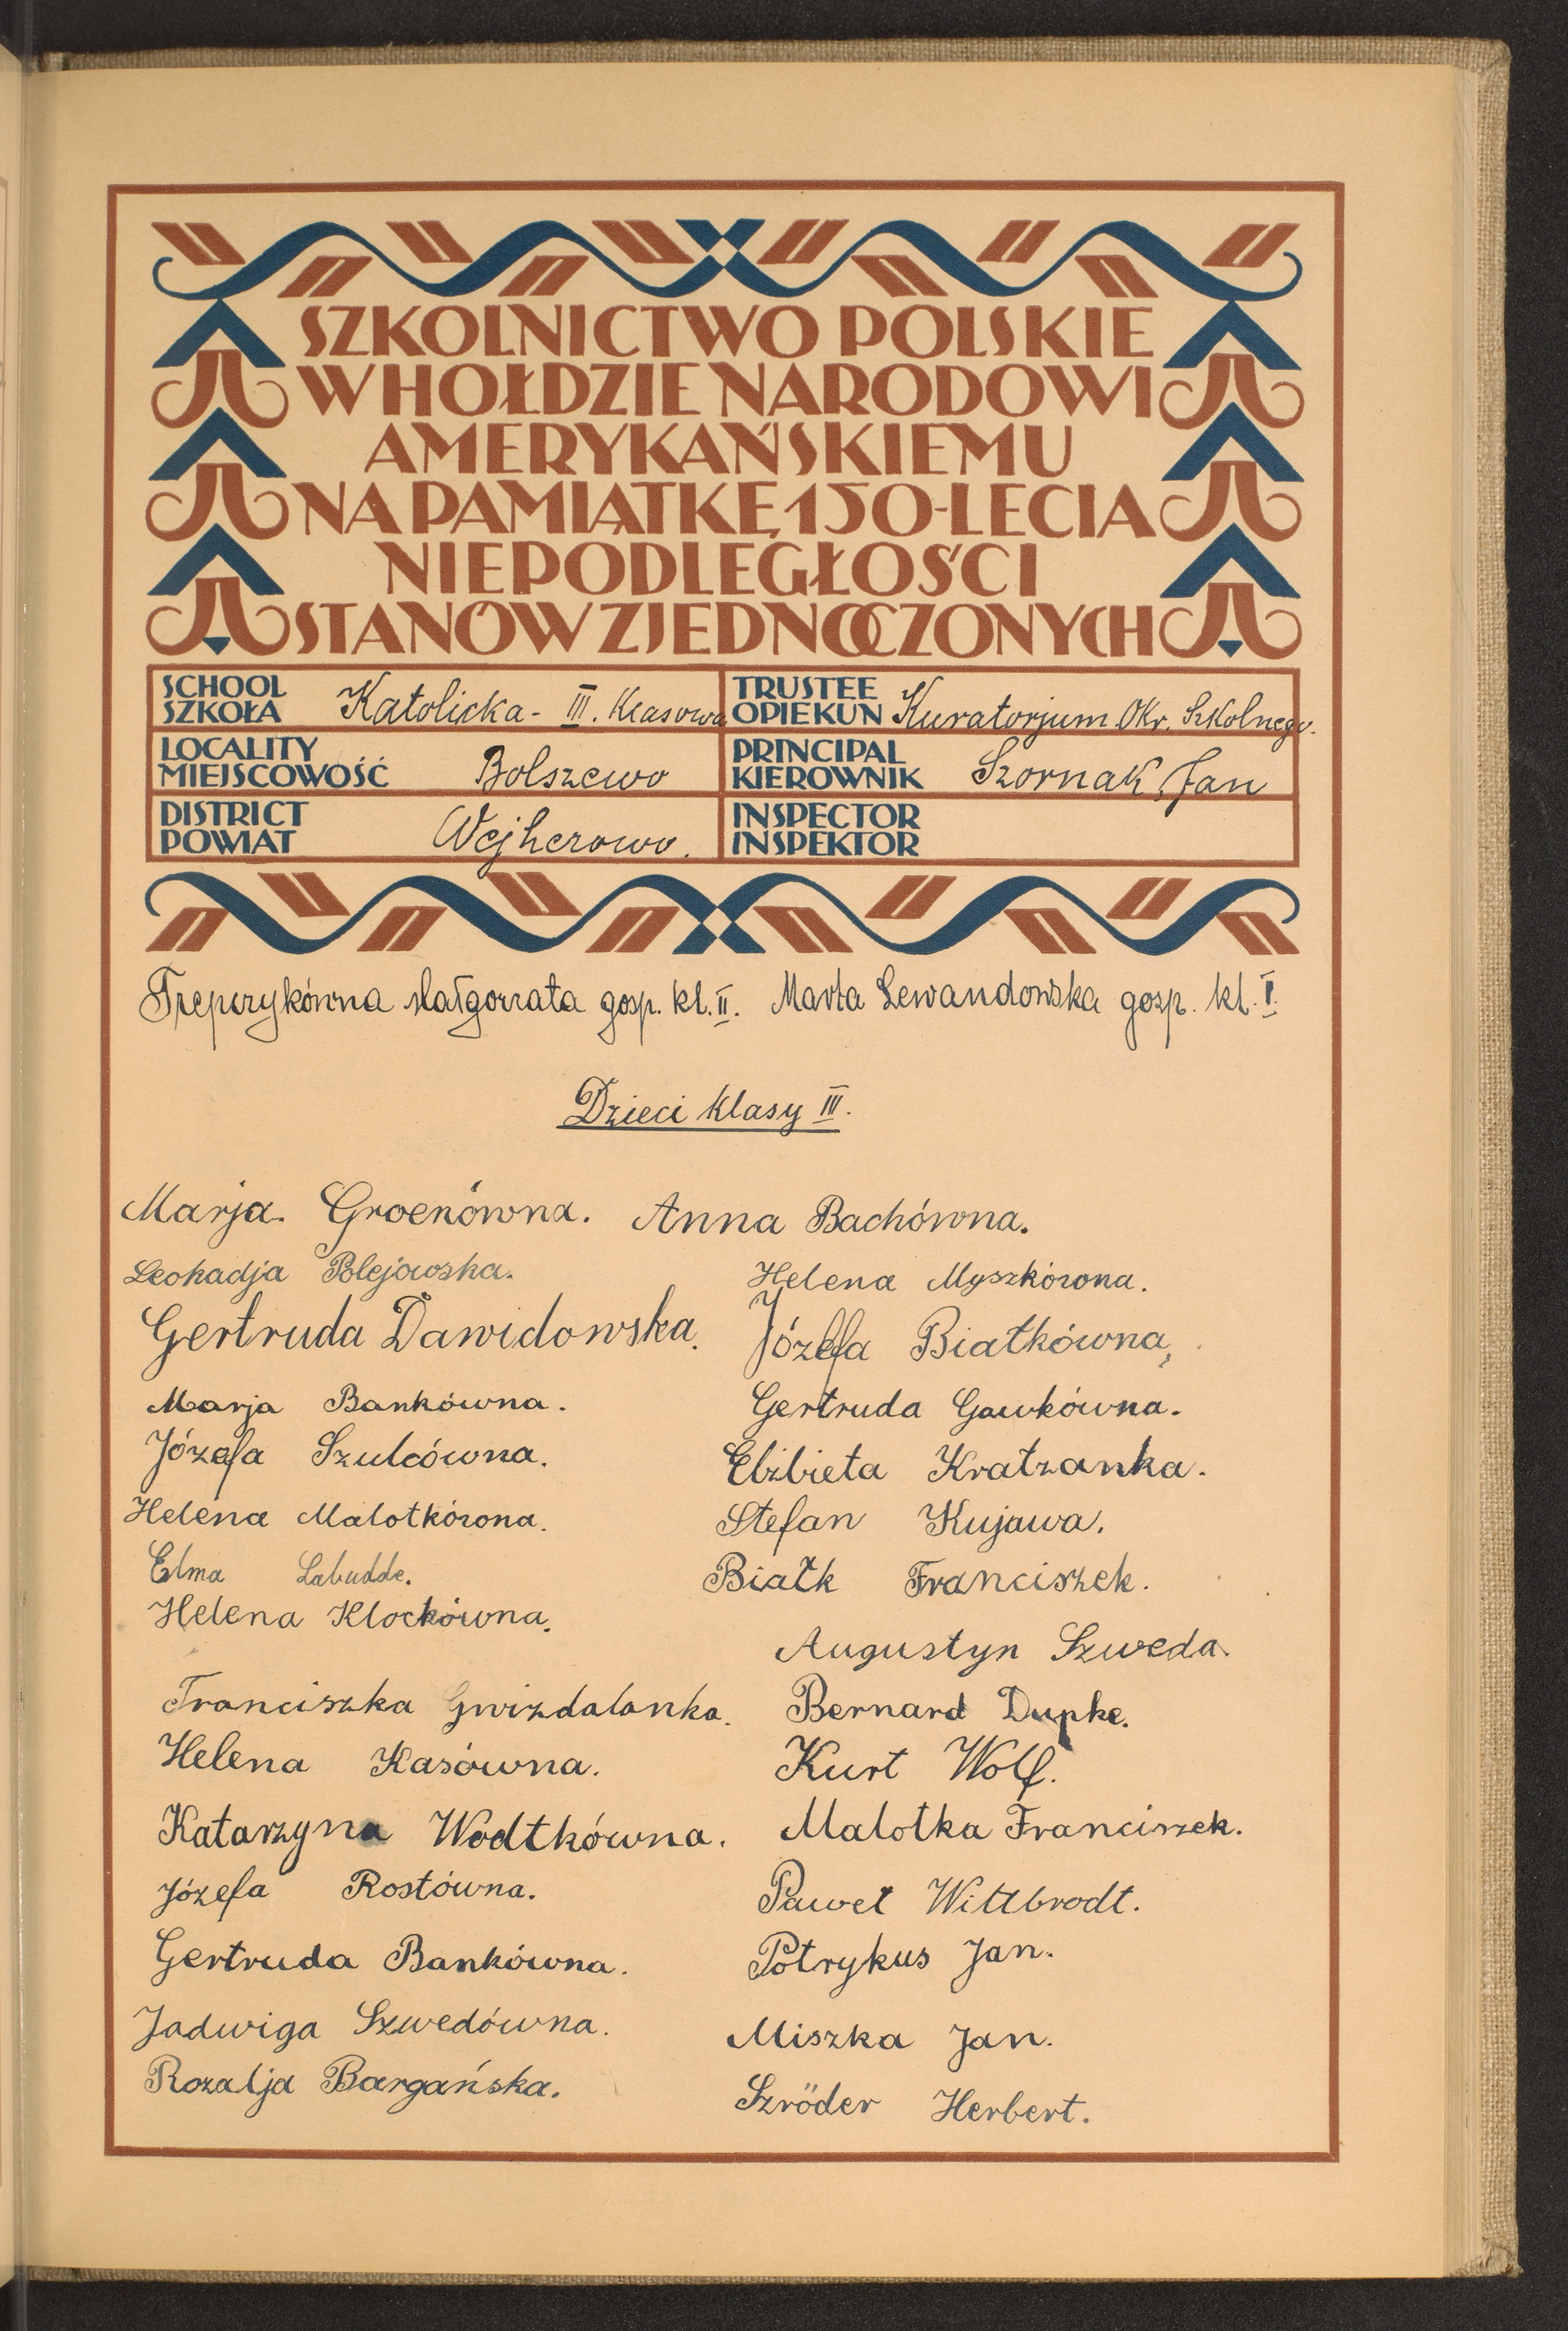 SZKOLNICTWO POLSKIE
W HOŁDZIE NARODOWI
AMERYKAŃSKIEMU
NA PAMIĄTKĘ 150-LECIA
NIEPODLEGŁOŚCI
STANÓW ZJEDNOCZONYCH
SCHOOL
SZKOŁA Katolicka - III. Klasowa
TRUSTEE
OPIEKUN Kuratorjum Okr. Szkolnego.
LOCALITY
MIEJSCOWOŚĆ Bolszewo
PRINCIPAL
KIEROWNIK Szornak Jan
DISTRICT
POWIAT Wejherowo.
INSPECTOR
INSPEKTOR
Trepczykówna Małgorzata gosp. kl. II. Marta Lewandowska gosp. kl. I.
Dzieci klasy III.
Marja. Groenówna. Anna Bachówna.
Leokadja Polejowska. Helena Myszkówna.
Gertruda Dawidowska. Józefa Białkówna,
Marja Bankówna. Gertruda Gawkówna.
Józefa Szulcówna. Elżbieta Kratzanka.
Helena Malotkówna. Stefan Kujawa.
Elma Labudde. Białk Franciszek.
Helena Klockówna.
Augustyn Szweda.
Franciszka Gwizdalanka. Bernard Dupke.
Helena Kasówna. Kurt Wolf.
Katarzyna Wodtkówna. Malotka Franciszek.
Józefa Rostówna. Paweł Wittbrodt.
Gertruda Bankówna. Potrykus Jan.
Jadwiga Szwedówna. Miszka Jan.
Rozalja Bargańska. Szröder Herbert.